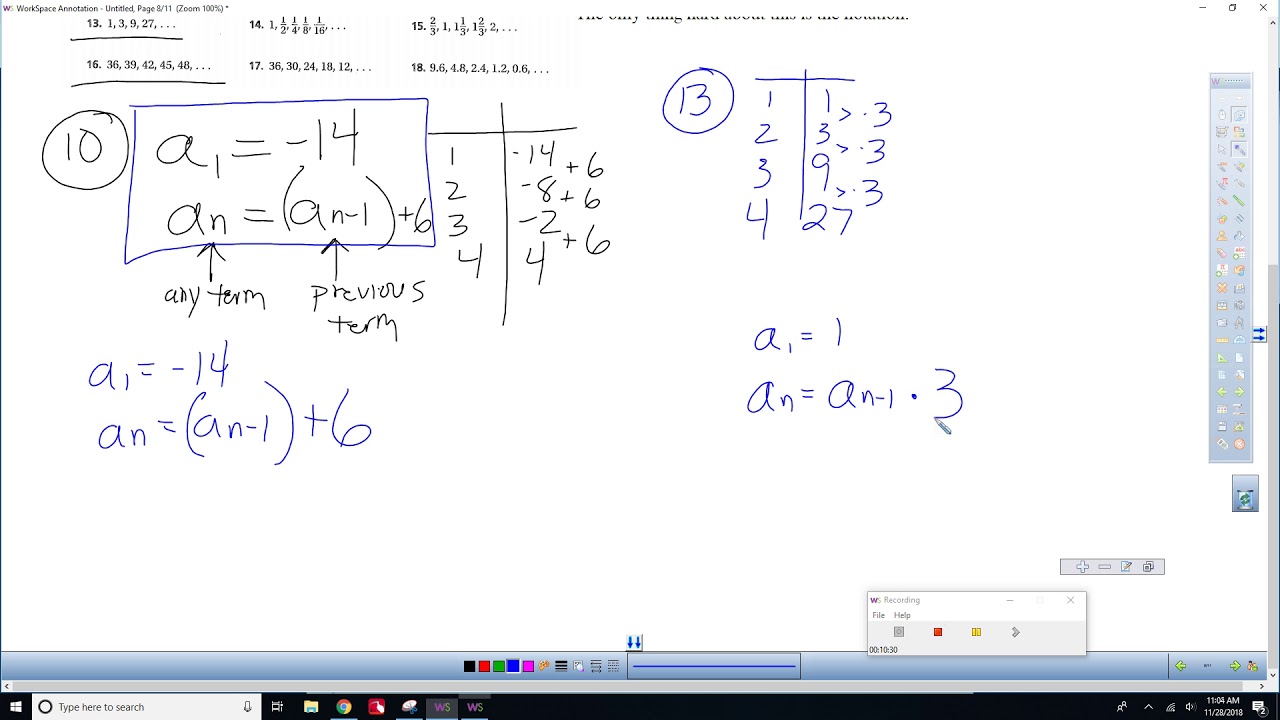 WorkSpace Annotation - Untitled, Page 8/11 (Zoom 100%) *
The only thing hard about this is the notation.
13. 1, 3, 9, 27, . . .
14. 1, 1/2, 1/4, 1/8, 1/16, . . .
15. 2/3, 1, 1 1/3, 1 2/3, 2, . . .
16. 36, 39, 42, 45, 48, . . .
17. 36, 30, 24, 18, 12, . . .
18. 9.6, 4.8, 2.4, 1.2, 0.6, . . .
10
a₁ = -14
aₙ = (aₙ₋₁) + 6
any term
previous
term
1 -14
+ 6
2 -8
+ 6
3 -2
+ 6
4 4
a₁ = -14
aₙ = (aₙ₋₁) + 6
13
1 1
> · 3
2 3
> · 3
3 9
> · 3
4 27
a₁ = 1
aₙ = aₙ₋₁ · 3
WS Recording
File Help
00:10:30
8/11
Type here to search
11:04 AM
11/28/2018